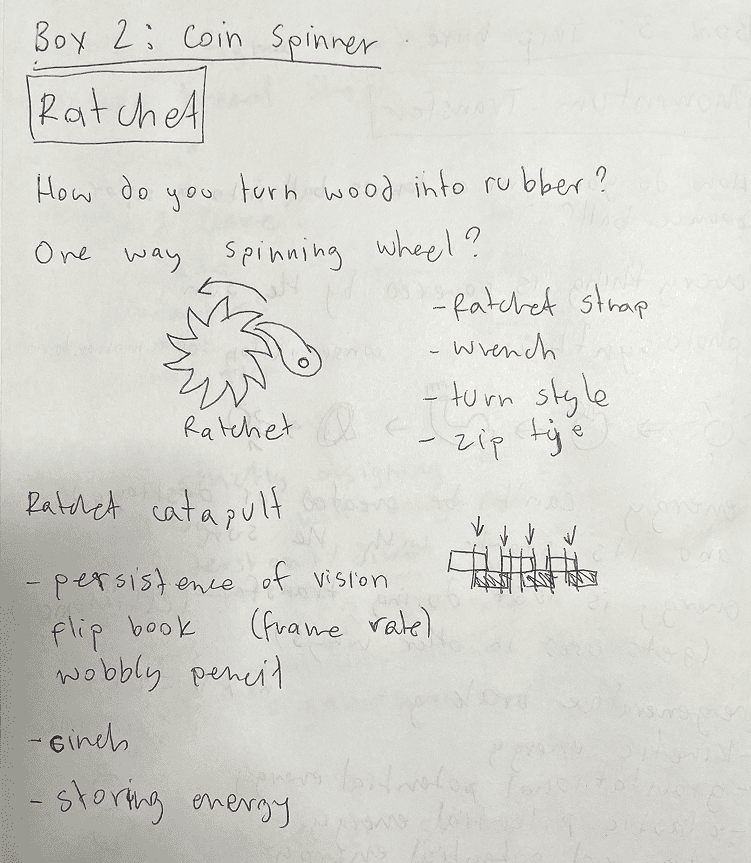 Box 2: Coin Spinner
Ratchet
How do you turn wood into rubber?
One way spinning wheel?
- Ratchet strap
- wrench
- turn style
- zip tye
Ratchet
Ratchet catapult
- persistence of vision
flip book (frame rate)
wobbly pencil
- cinch
- storing energy